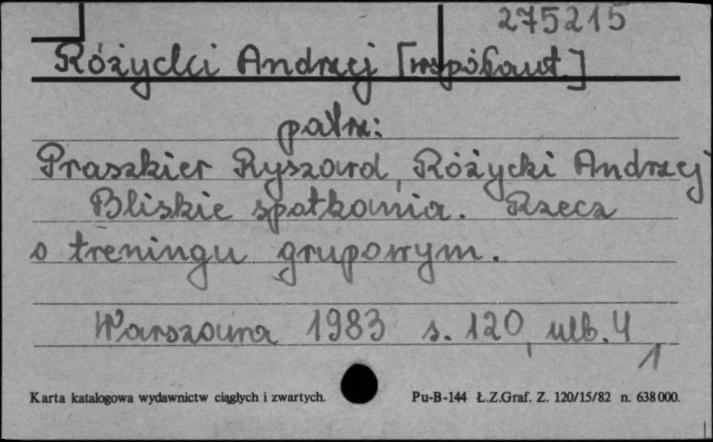 275215
Różycki Andrzej [współaut.]
patrz:
Praszkier Ryszard, Różycki Andrzej
Bliskie spotkania. Rzecz
o treningu grupowym.
Warszawa 1983 s. 120, nlb. 4
1
Karta katalogowa wydawnictw ciągłych i zwartych. Pu-B-144 Ł.Z.Graf. Z. 120/15/82 n. 638000.